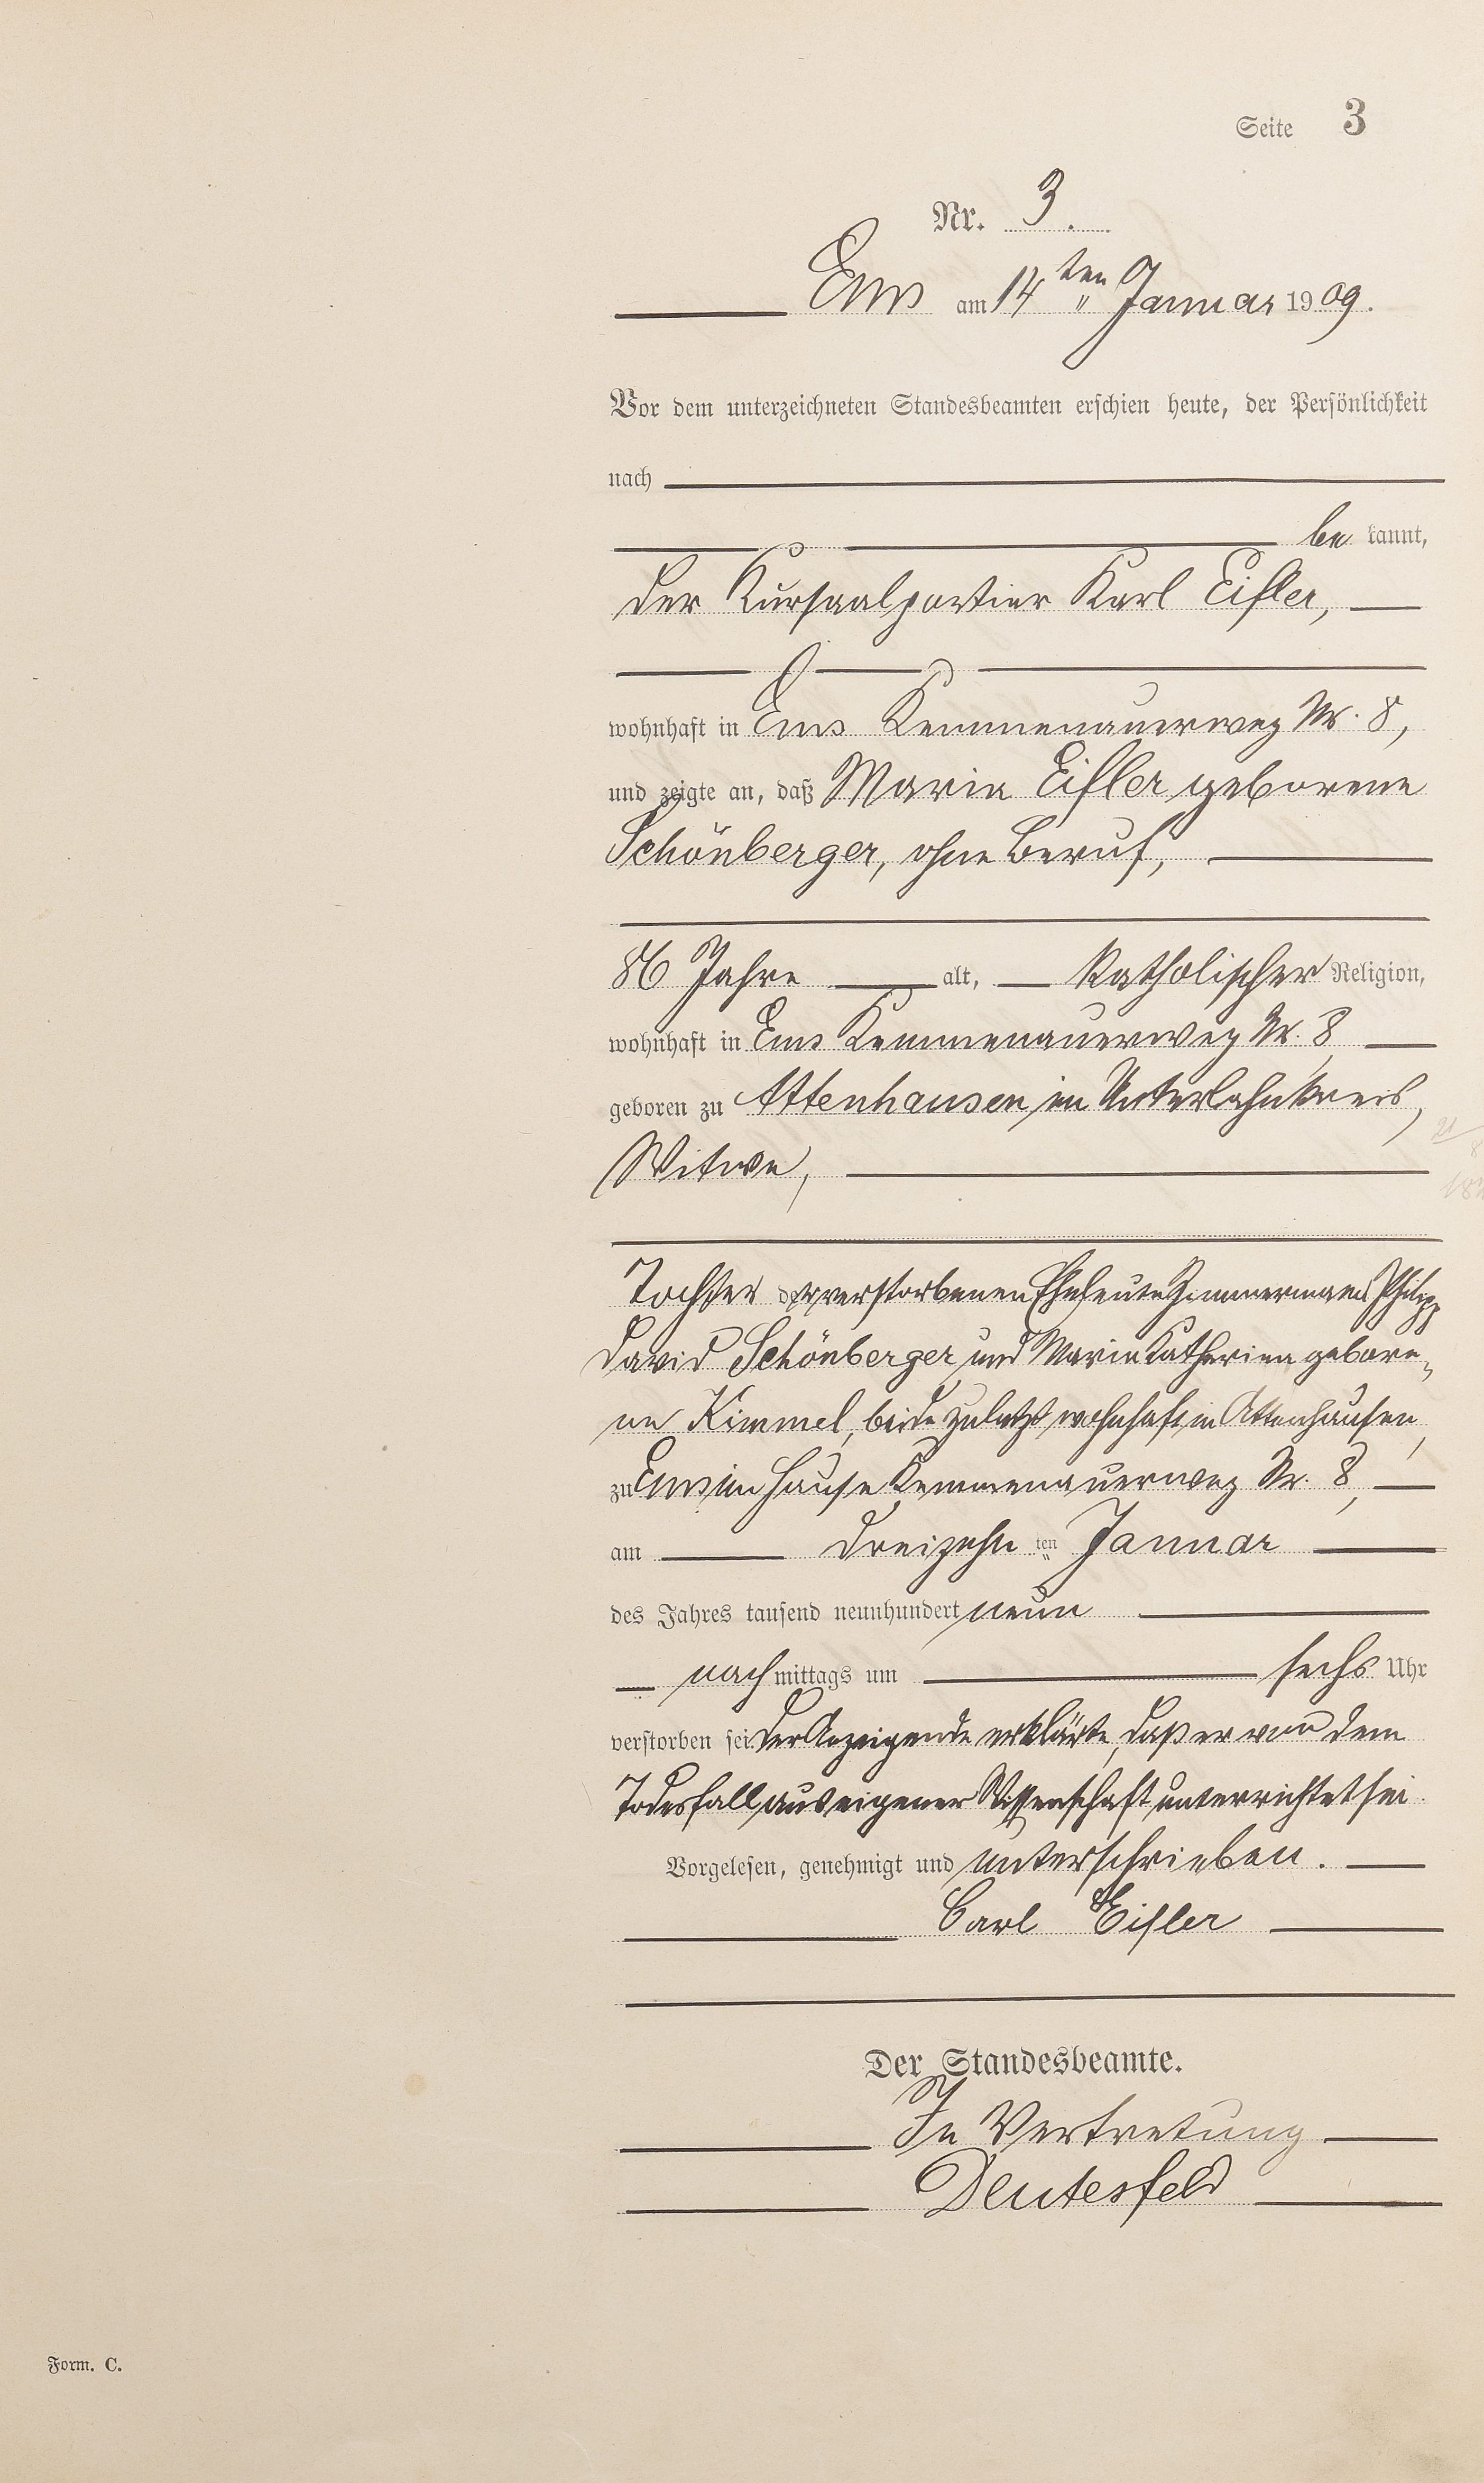 Seite 3
Nr. 3.
Ems am 14ten Januar 1909.
Vor dem unterzeichneten Standesbeamten erschien heute, der Persönlichkeit
nach
be kannt,
der Kursaalportier Karl Eisler,
wohnhaft in Ems Kemmenauerweg Nr. 8,
und zeigte an, daß Maria Eisler geborene
Schönberger, ohne Beruf,
86 Jahre alt, katholischer Religion,
wohnhaft in Ems Kemmenauerweg Nr. 8
geboren zu Attenhausen im Unterlahnkreis,
Witwe,
Tochter der verstorbenen Eheleute Zimmermann Philipp
David Schönberger und Maria Katharina gebore-
ne Kimmel, beide zuletzt wohnhaft in Attenhausen,
zu Ems im Hause Kemmenauerweg Nr. 8,
am dreizehn ten Januar
des Jahres tausend neunhundert neun
nach mittags um sechs Uhr
verstorben sei. Der Anzeigende erklärte, daß er von dem
Todesfall aus eigener Wissenschaft unterrichtet sei.
Vorgelesen, genehmigt und unterschrieben.
Carl Eisler
Der Standesbeamte.
In Vertretung
Deutesfeld
Form. C.